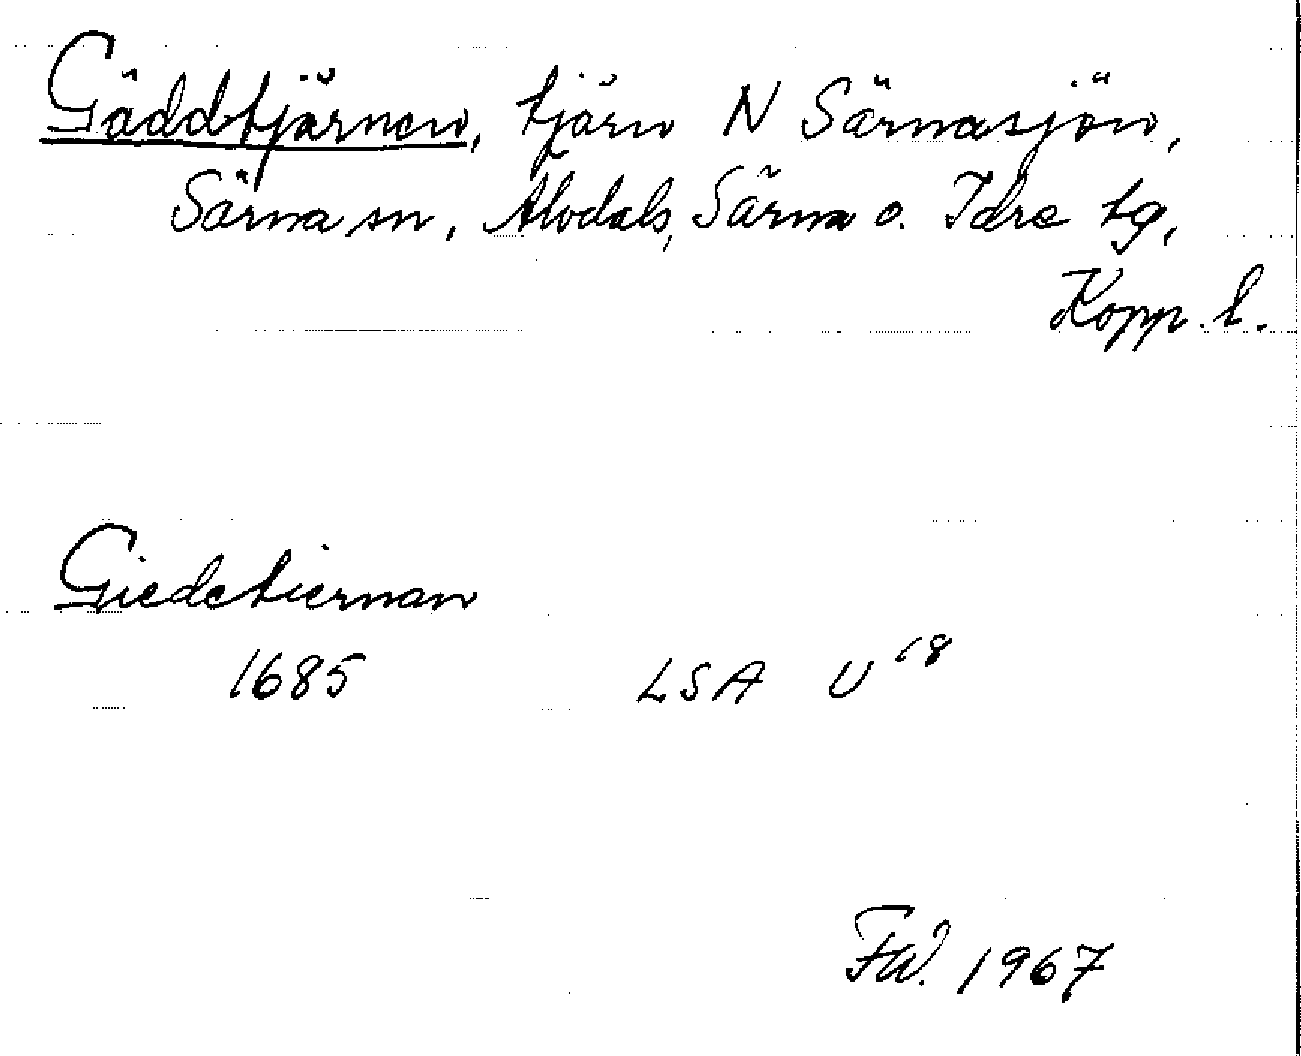 Gäddtjärnen, tjärn N Särnasjön,
Särna sn, Älvdals, Särna o. Idre tg,
Kopp. l.
Giedetiernan
1685 LSA U 18
FW. 1967